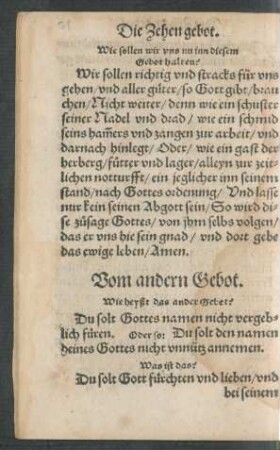 Die Zehen gebot.
Wie sollen wir vns nu inn diesem
Gebot halten?
Wir sollen richtig vnd stracks für vns
gehen / vnd aller güter / so Gott gibt / brau
chen / Nicht weiter / denn wie ein schuster
seiner Nadel vnd drad / wie ein schmid
seins ham̃ers vnd zangen zur arbeit / vnd
darnach hinlegt / Oder / wie ein gast der
herberg / fütter vnd lager / alleyn zur zeit
lichen notturfft / ein jeglicher inn seinem
stand / nach Gottes ordenung / Vnd lasse
nur kein seinen Abgott sein / So wird di-
se zůsage Gottes / von jhm selbs volgen /
das er vns hie sein gnad / vnd dort gebe
das ewige leben / Amen.
Vom andern Gebot.
Wie heyßt das ander Gebot?
Du solt Gottes namen nicht vergeb-
lich füren. Oder so: Du solt den namen
deines Gottes nicht vnnütz annemen.
Was ist das?
Du solt Gott fürchten vnd lieben / vnd
bei seinem